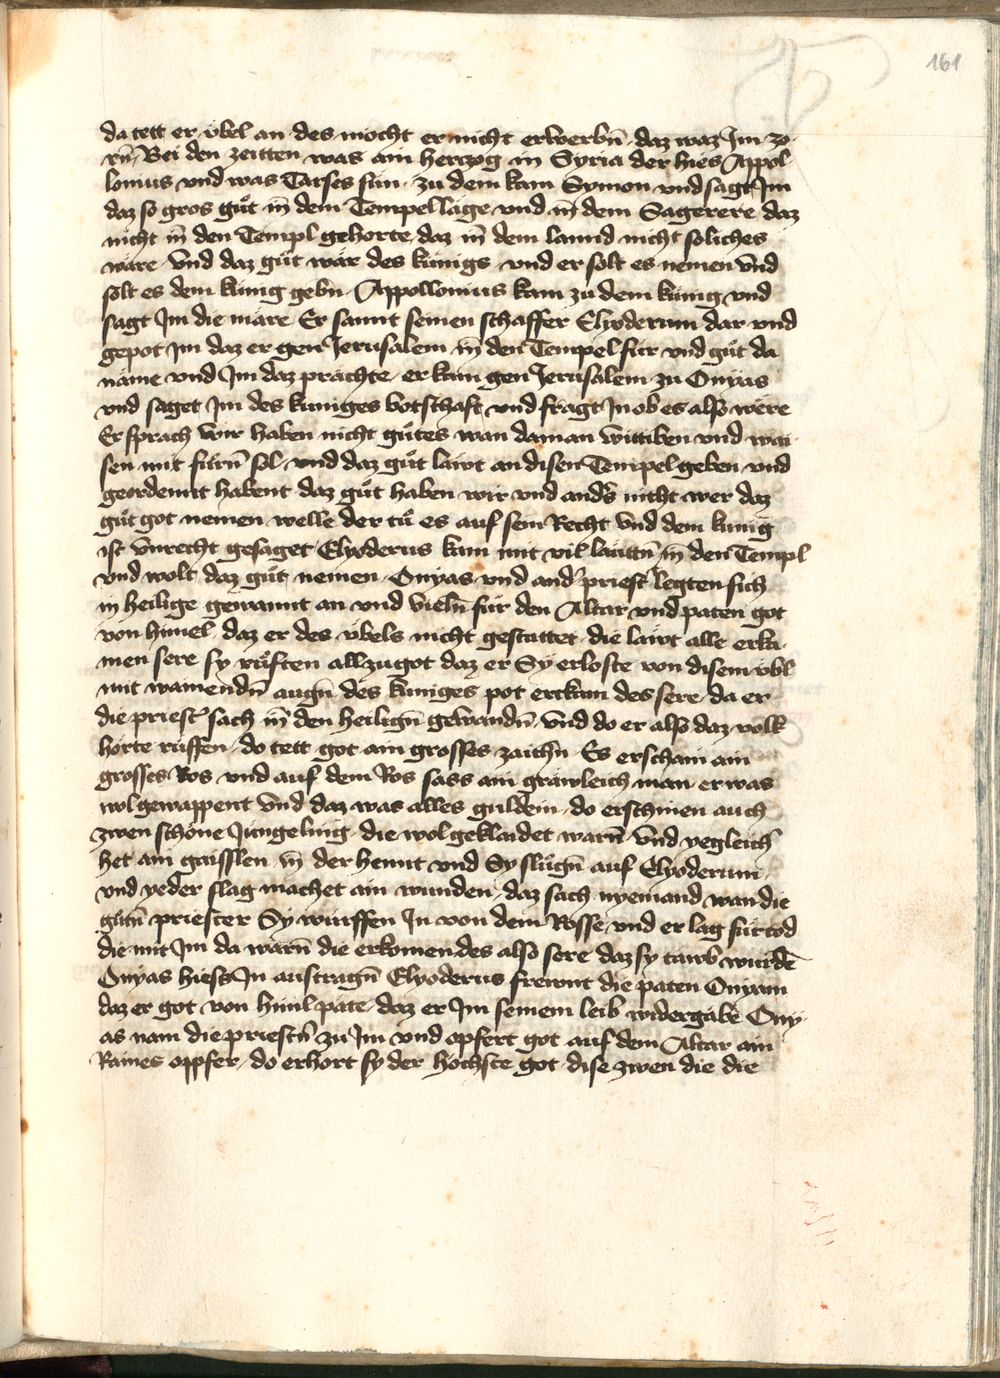 161
da tett er übel an des mocht er nicht erwerbn̄ daz waz Im zo-
rn̄ Bei den zeitten was ain hertzog in Syria der hies Appol
lonius vnd was Tarses sun zu dem kam Symon vnd sagt Im
daz so gros gůt in̄ dem Tempel läge vnd in̄ dem Sagerere daz
nicht in̄ den Templ gehorte daz in̄ dem lannd nicht soliches
wäre vnd daz gůt wär des künigs vnd er solt es nemen vnd
solt es dem künig gebn Appollonius kam zu dem künig vnd
sagt Im die märe Er sannt seinen schaffer Elyoderum dar vnd
gepot im daz er gen Jerusalem in̄ den Tempel für vnd gůt da
näme vnd Im daz prächte er kam gen Jerusalem zu Onyas
vnd saget Im des kuniges botschaft vnd fragt In ob es also were
Er sprach wir haben nicht gůtes wan da man wittiben vnd wai-
sen mit fürn̄ sol vnd daz gůt läwt an disen Tempel geben vnd
geordennt habent daz gůt haben wir vnd anders nicht wer daz
gůt got nemen welle der tů es auf sein Recht vnd dem künig
ist vnrecht gesaget Elyoderus kam mit vil läuttn̄ in̄ den Templ
vnd wolt daz gůt nemen Onyas vnd ander priest' legten sich
in heilige gewannt an vnd vieln̄ für den Altar vnd paten got
von himel daz er des übels nicht gestattet die läwt alle erka-
men sere sy růften all zu got daz er Sy erloste von disem übl
mit wainendn̄ augn̄ des kuniges pot erckam des sere da er
die priest' sach in̄ den heilign̄ gewandn̄ vnd do er also daz volk
horte rüffen do tett got ain grosses zaichn̄ Es erschain ain
grosses Ros vnd auf dem Ros sass ain gräwleich man er was
wol gewappent vnd daz was alles guldein do erschinen auch
zwen schöne Jüngeling die wol geklaidet warn̄ vnd yegleich'
het ain gaisslen in̄ der hennt vnd Sy slůgn̄ auf Elyoderum
vnd yeder slag machet ain wunden daz sach nyemand wan die
gůtn̄ priester Sy wurffen In von dem Rosse vnd er lag für tod
die mit Im da warn̄ die erkomen des also sere daz sy tawb wurdē
Onyas hiess In austragn̄ Elyoderus frewnt die paten Onyam
daz er got von himl päte daz er Im seinem leib widergäbe Ony-
as nam die priestn̄ zu Im vnd opfert got auf dem Altar ain
Raines oppfer do erhort sy der höchste got dise zwen die die